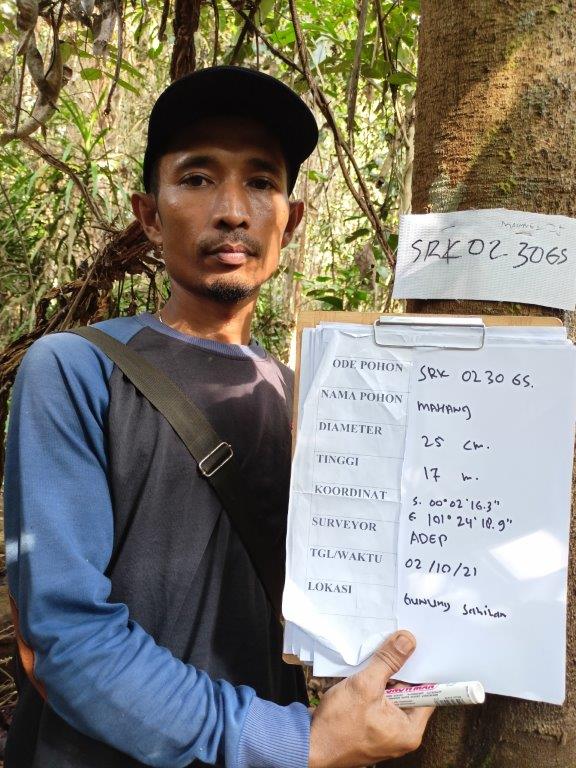 SRK 02 30 GS
ODE POHON SRK 0230 GS.
NAMA POHON MAHANG
DIAMETER 25 cm.
TINGGI 17 m.
KOORDINAT S. 00°02'16.3"
E 101°24'18.9"
SURVEYOR ADEP
TGL/WAKTU 02/10/21
LOKASI Gunung Sahilan